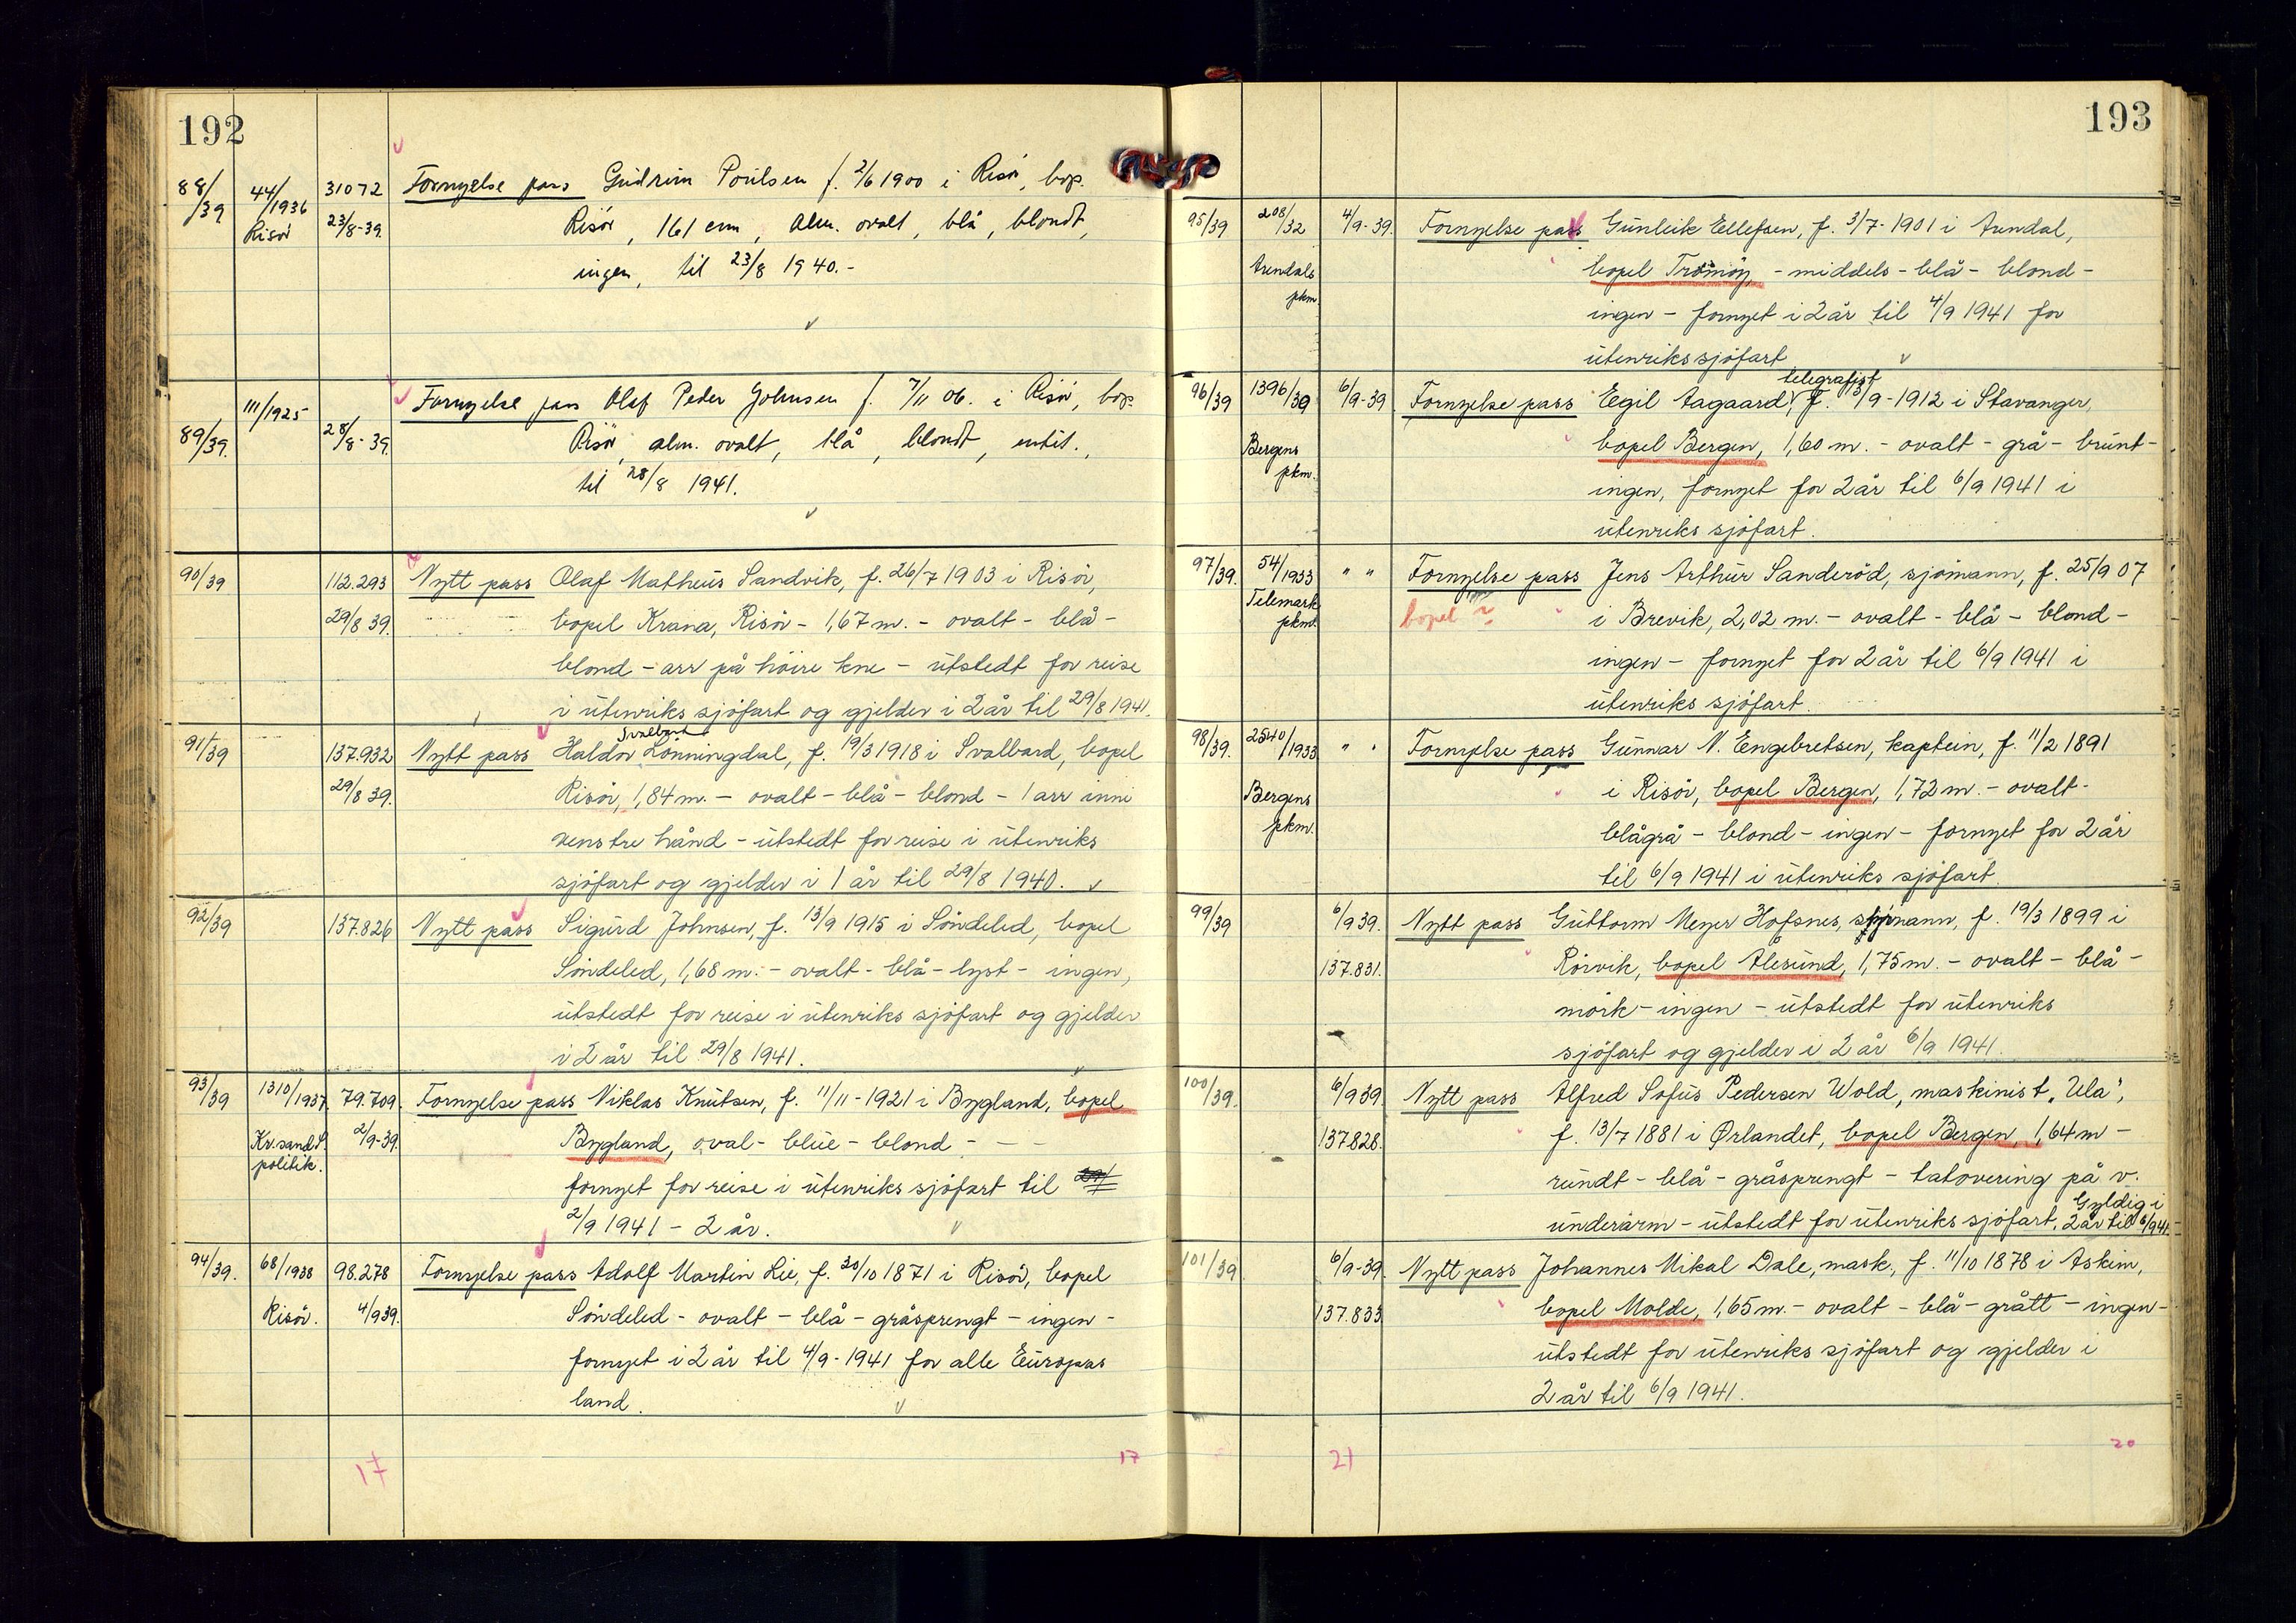 192
88/39 44/1936 31072 Fornyelse pass Gudrun Poulsen f. 2/6 1900 i Risör, bop.
Risör 23/8-39. Risör, 161 cm, alm. ovalt, blå, blondt,
ingen, til 23/8 1940.-
111/1925 Fornyelse pass Olaf Peder Johnsen f. 7/11 06. i Risör, bop.
89/39. 28/8-39. Risör, alm. ovalt, blå, blondt, intet.,
til 28/8 1941.
90/39 112.293 Nytt pass Olaf Matheus Sandvik, f. 26/7 1903 i Risör,
29/8 39. bopel Krana, Risör - 1,67 m. - ovalt - blå -
blond - arr på höire kne - utstedt for reise
i utenriks sjöfart og gjelder i 2 år til 29/8 1941.
Svalbard
91/39 137.932 Nytt pass Haldor Lönningdal, f. 19/3 1918 i Svalbard, bopel
29/8 39. Risör, 1,84 m. - ovalt - blå - blond - 1 arr inni
venstre hånd - utstedt for reise i utenriks
sjöfart og gjelder i 1 år til 29/8 1940.
92/39 137.826 Nytt pass Sigurd Johnsen, f. 13/9 1915 i Söndeled, bopel
Söndeled, 1,68 m. - ovalt - blå - lyst - ingen,
utstedt for reise i utenriks sjöfart og gjelder
i 2 år til 29/8 1941.
93/39 1310/1937 79.709. Fornyelse pass Niklas Knutsen, f. 11/11-1921 i Bygland, bopel
Kr.sand S. 2/9-39. Bygland, oval - blue - blond - - -
politik. fornyet for reise i utenriks sjöfart til 29/
2/9 1941 - 2 år.
94/39. 68/1938 98.278 Fornyelse pass Adolf Martin Lie, f. 20/10 1871 i Risör, bopel
Risör. 4/9 39. Söndeled - ovalt - blå - gråsprengt - ingen -
fornyet i 2 år til 4/9-1941 for alle Europas
land.
17 17
193
95/39 208/32 4/9-39. Fornyelse pass Gunleik Ellefsen, f. 3/7-1901 i Arendal,
Arendals pkm. bopel Tromöy, - middels - blå - blond -
ingen - fornyet i 2 år til 4/9 1941 for
utenrikssjöfart
telegrafist
96/39 1396/39 6/9-39 Fornyelse pass Egil Aagaard, f. 13/9-1912 i Stavanger,
Bergens pkm. bopel Bergen, 1,60 m. - ovalt - grå - brunt -
ingen, fornyet for 2 år til 6/9 1941 i
utenriks sjöfart.
97/39. 54/1933 " " Fornyelse pass Jens Arthur Sanderöd, sjömann, f. 25/9 07
Telemark pkm. bopel ? i Brevik, 2,02 m. - ovalt - blå - blond -
ingen - fornyet for 2 år til 6/9 1941 i
utenriks sjöfart.
98/39. 2540/1933 " " Fornyelse pass Gunnar N. Engebretsen, kaptein, f. 11/2 1891
Bergens pkm. i Risör, bopel Bergen, 1,72 m. - ovalt -
blågrå - blond - ingen - fornyet for 2 år
til 6/9 1941 i utenriks sjöfart.
99/39 6/9 39. Nytt pass Guttorm Meyer Hofsnes, sjömann, f. 19/3 1899 i
137.831. Rörvik, bopel Ålesund, 1,75 m. - ovalt - blå -
mörk - ingen - utstedt for utenriks
sjöfart og gjelder i 2 år 6/9 1941.
100/39. 6/9 39 Nytt pass Alfred Sofus Pedersen Wold, maskinist „Ula",
137.828. f. 13/7 1881 i Ørlandet, bopel Bergen, 1,64 m -
rundt - blå - gråsprengt - tatovering på v.
underarm - utstedt for utenriks sjöfart. Gyldig i 2 år til 6/9 41.
101/39 6/9-39. Nytt pass Johannes Mikal Dale, mask., f. 11/10 1878 i Askim,
137.833 bopel Molde, 1,65 m. - ovalt - blå - grått - ingen -
utstedt for utenriks sjöfart og gjelder i
2 år til 6/9 1941.
21 20